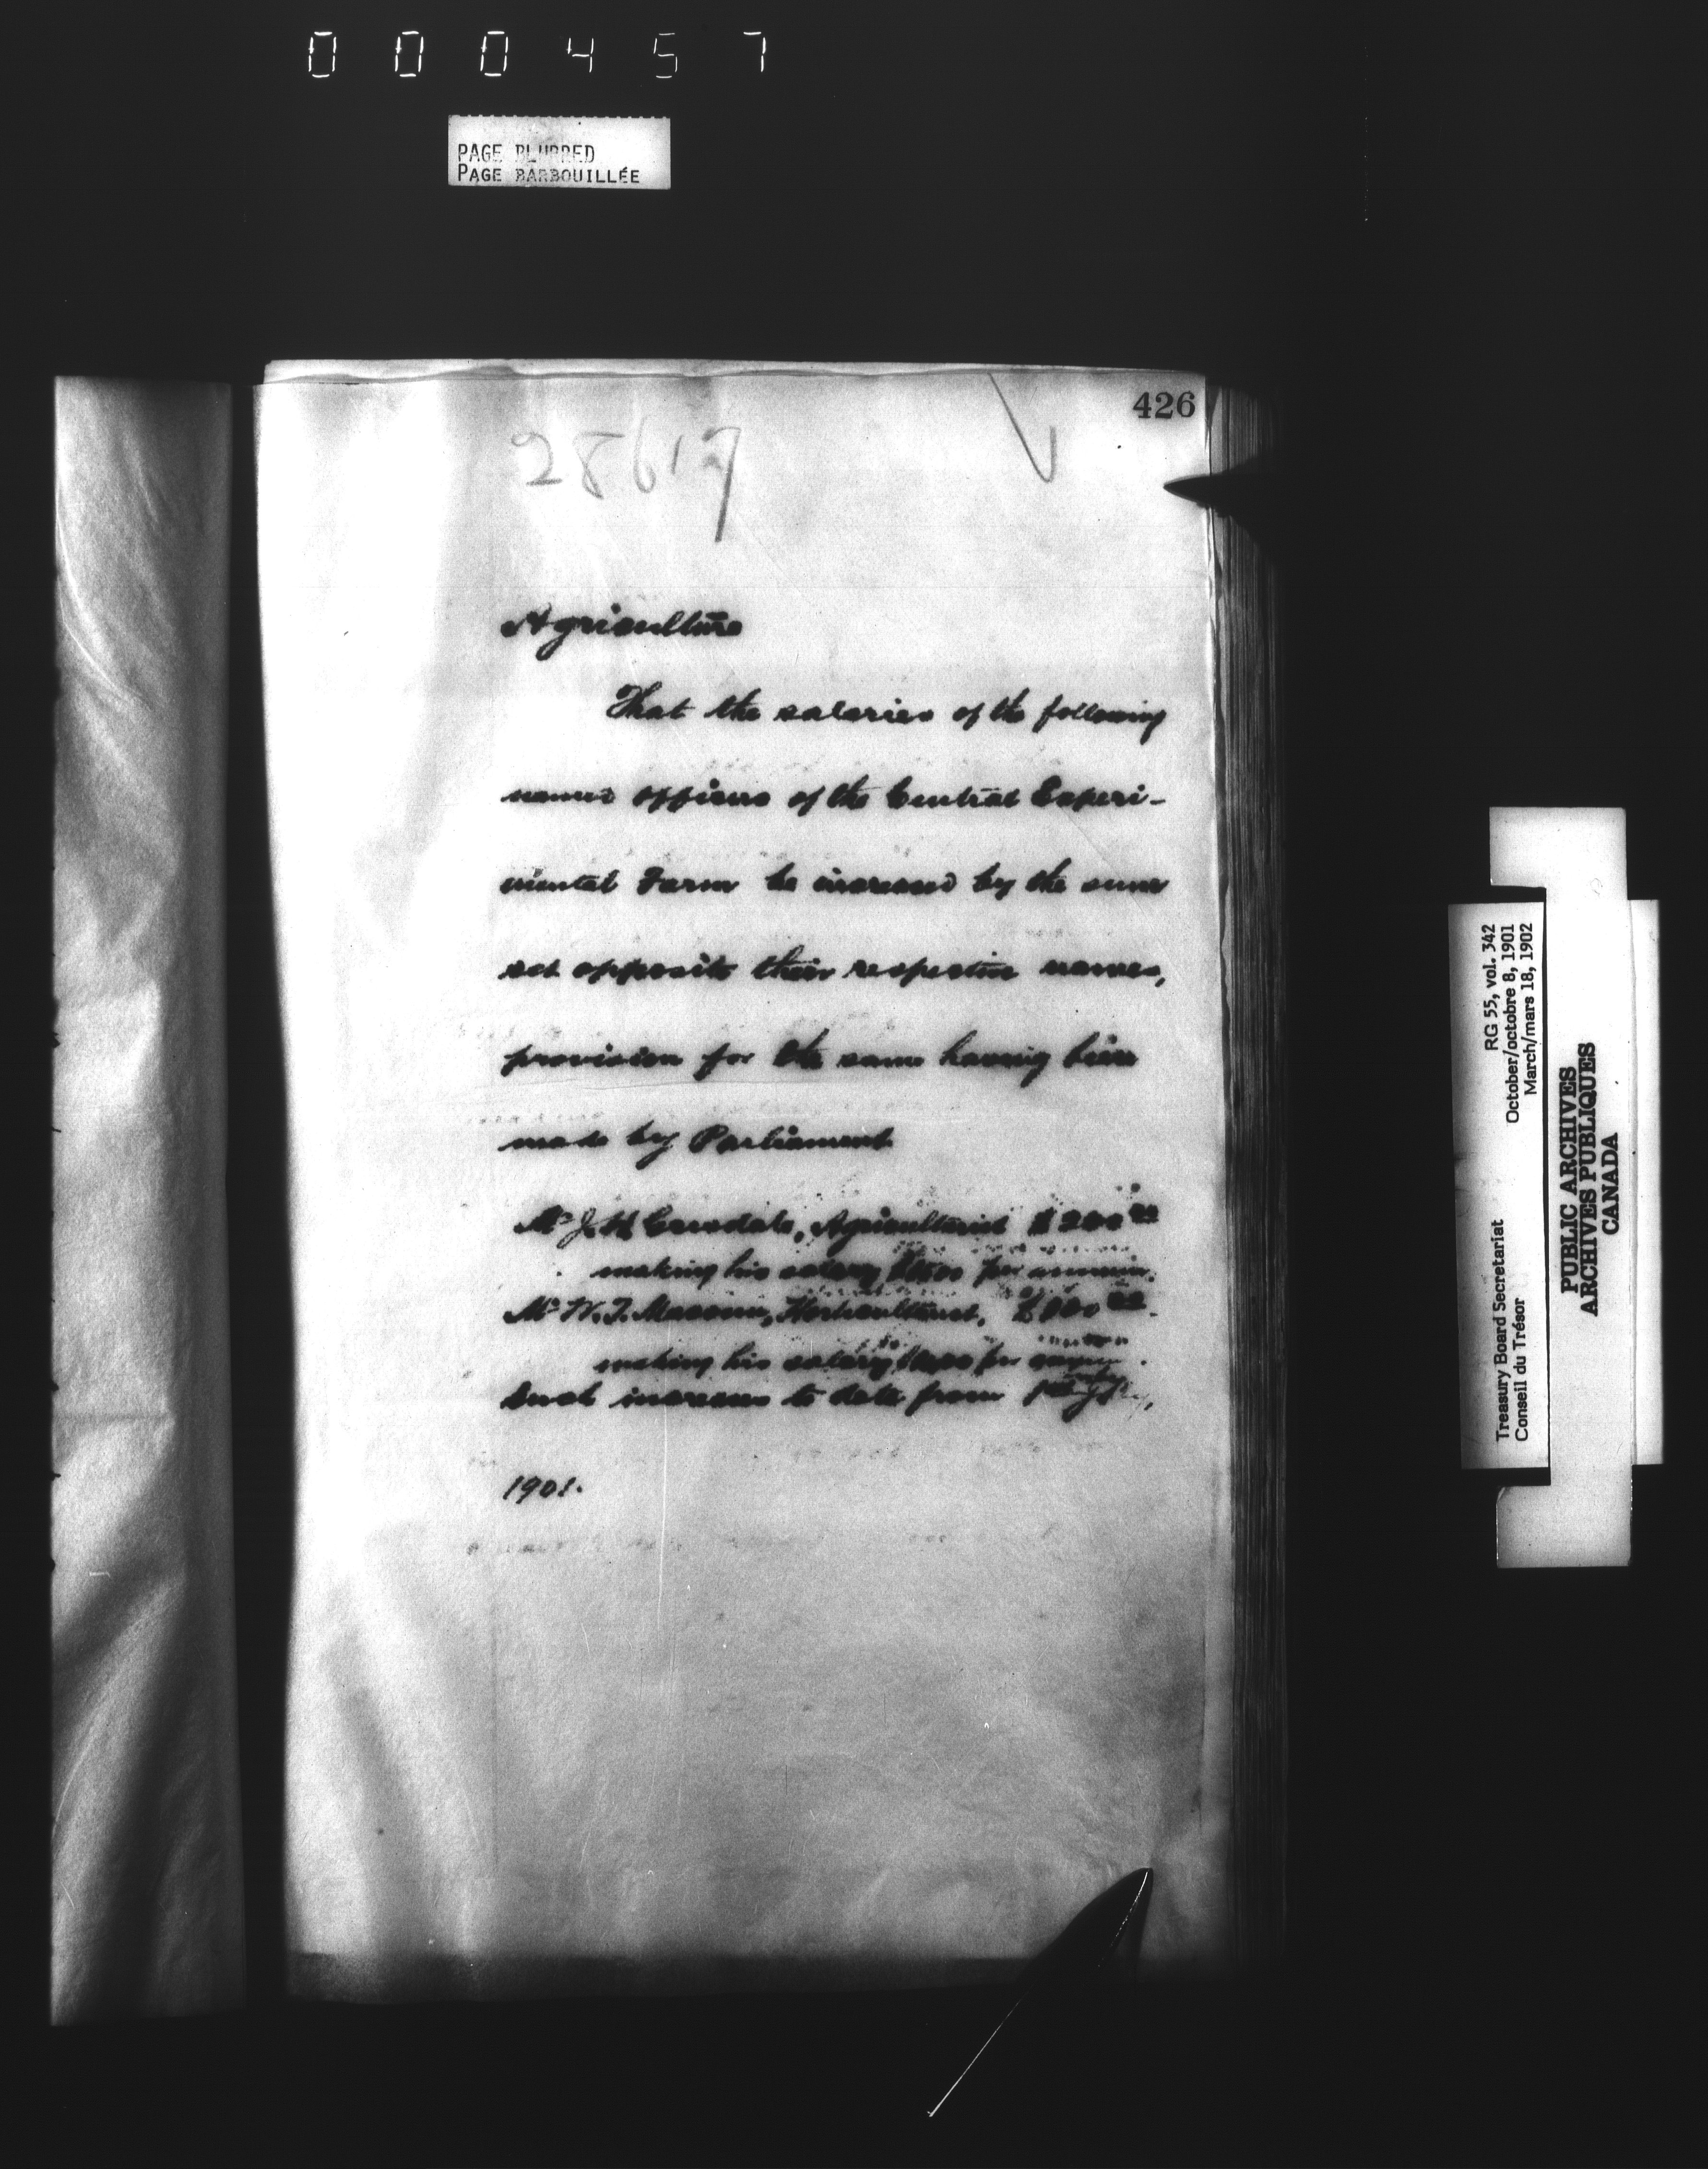 000457
PAGE BLURRED
PAGE BARBOUILLÉE
426
28617
Agriculture
That the salaries of the following
named officers of the Central Experi-
mental Farm be increased by the sums
set opposite their respective names,
provision for the same having been
made by Parliament.
Mr J. H. Grisdale, Agriculturist $200 00
making his salary per annum.
Mr W. T. Macoun, Horticulturist,
making his salary per annum.
Such increases to date from 1st July,
1901.
RG 55, vol. 342
October/octobre 8, 1901
March/mars 18, 1902
Treasury Board Secretariat
Conseil du Trésor
PUBLIC ARCHIVES
ARCHIVES PUBLIQUES
CANADA